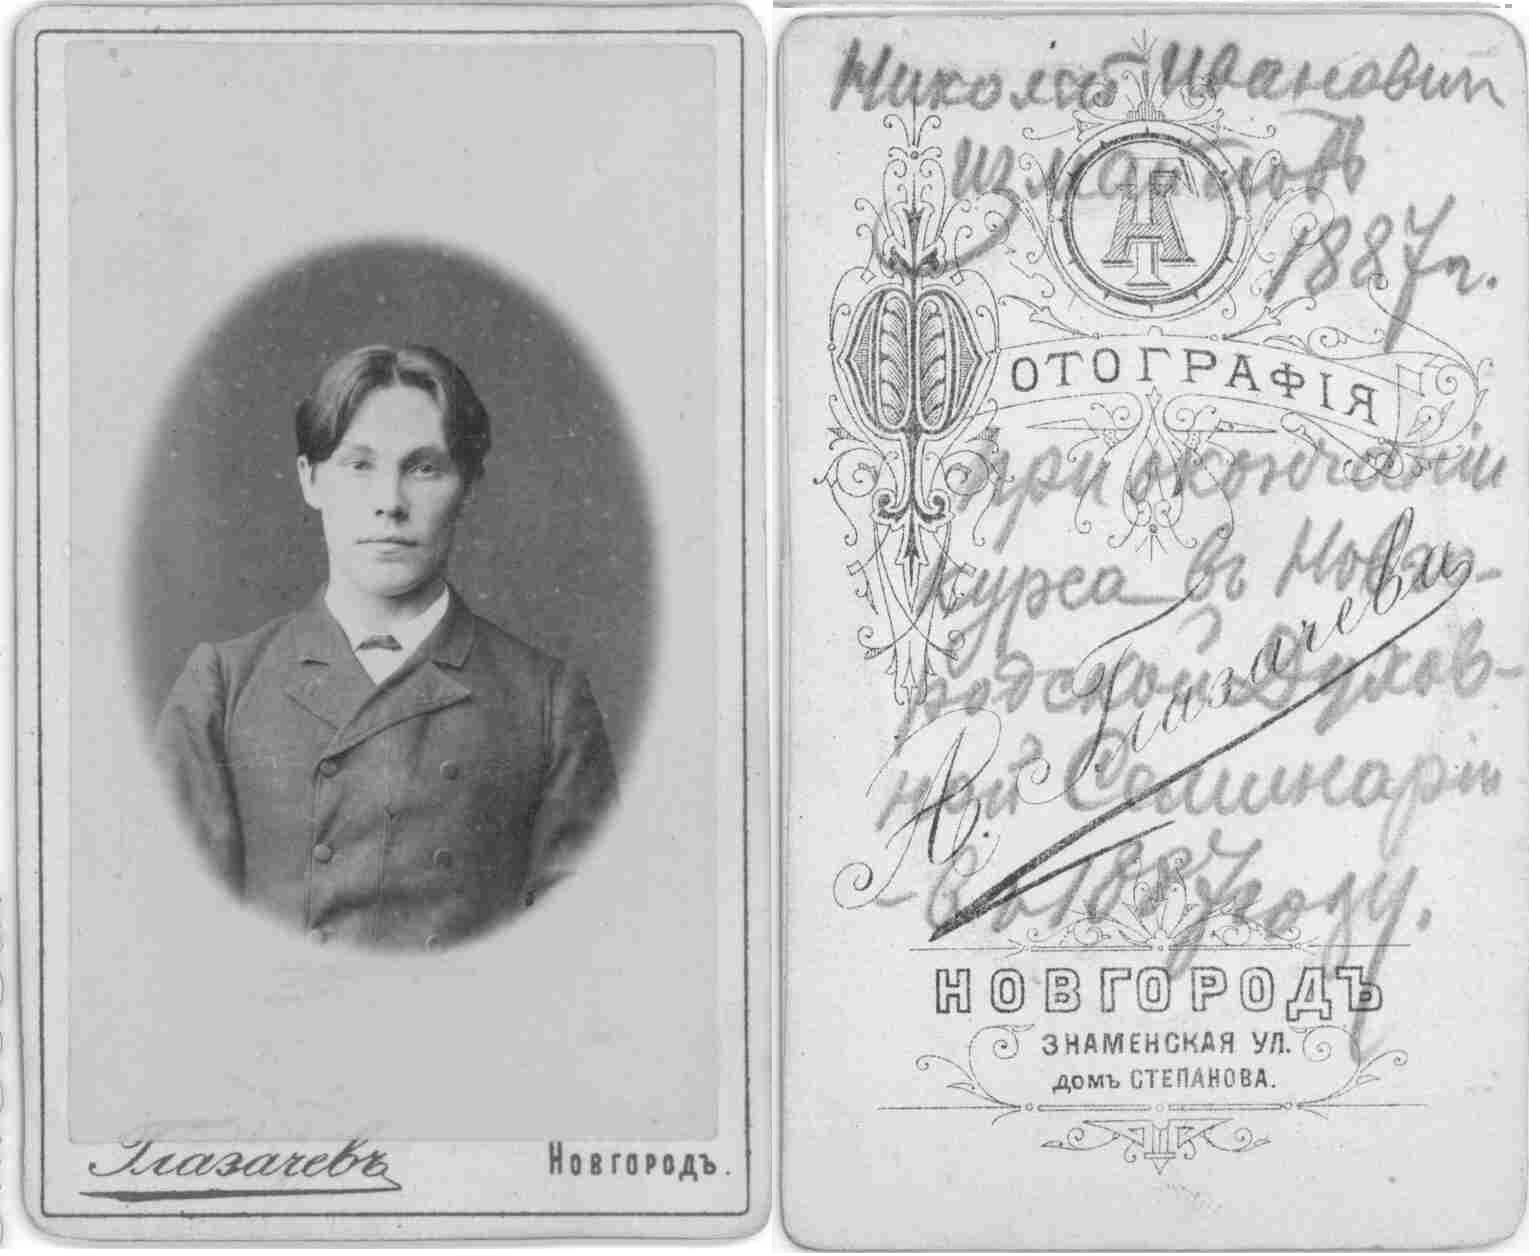 Глазачевъ
Новгородъ.
Николай Ивановичъ
Измайловъ
1887 г.
АГ
ФОТОГРАФІЯ
при окончаніи
курса въ Новго-
родской Духов-
ной Семинаріи
- въ 1887 году.
А. Глазачевъ
НОВГОРОДЪ
ЗНАМЕНСКАЯ УЛ.
домъ СТЕПАНОВА.